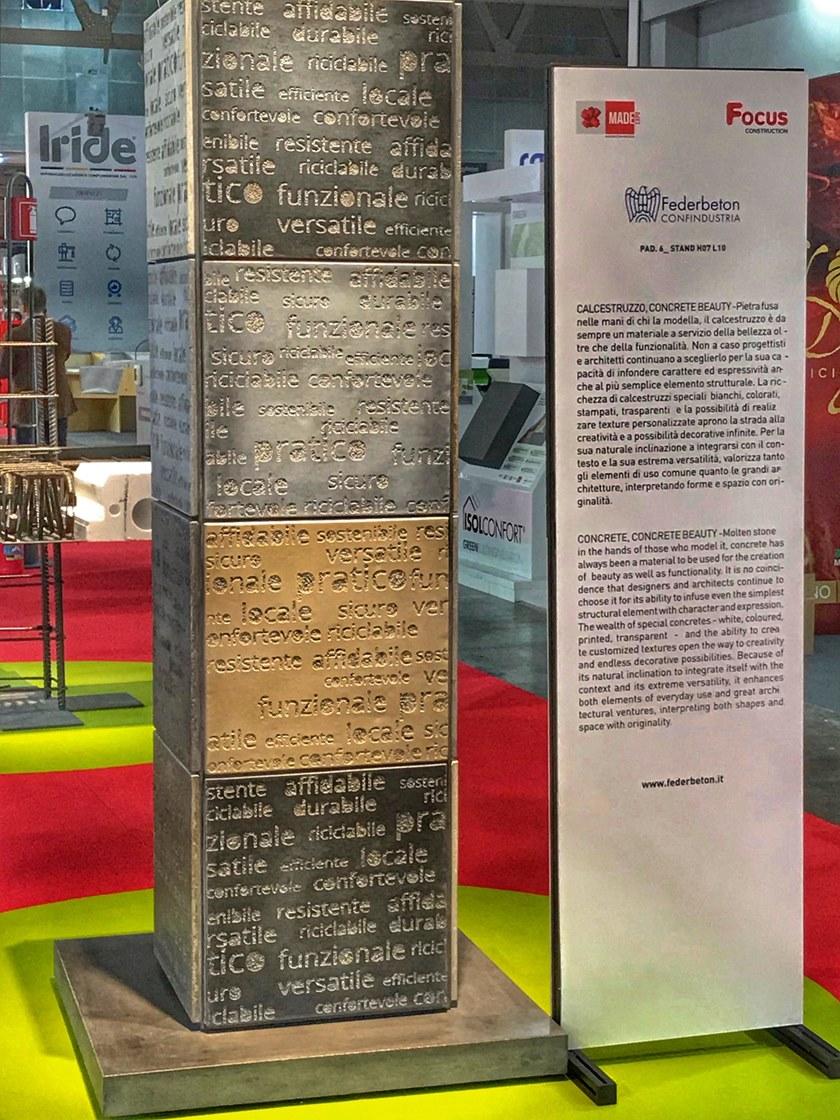 stente affidabile sosteni
ciclabile durabile rici
zionale riciclabile pra
satile efficiente locale
confortevole confortevole
enibile resistente affida
rsatile riciclabile durab
tico funzionale ricicl
uro versatile efficiente
iclabile confortevole con
bile resistente affidabile
clabile sicuro durabile
tico funzionale res
sicuro riciclabile efficiente loc
riciclabile confortevole
bile sostenibile resistente
ile riciclabile
abile pratico funzi
locale sicuro
fortevole riciclabile conf
affidabile sostenibile resi
sicuro versatile ri
ionale pratico fun
nte locale sicuro ver
onfortevole riciclabile
resistente affidabile sost
confortevole ve
funzionale pra
atile efficiente locale sic
confortevole confortevole ric
stente affidabile sosteni
ciclabile durabile rici
zionale riciclabile pra
satile efficiente locale
confortevole confortevole
enibile resistente affida
rsatile riciclabile durab
tico funzionale ricicl
uro versatile efficiente
iclabile confortevole con
Iride
ISOLCONFORT
GREEN
MADE
EXPO
Focus
CONSTRUCTION
Federbeton
CONFINDUSTRIA
PAD. 6_ STAND H07 L10
CALCESTRUZZO, CONCRETE BEAUTY -Pietra fusa
nelle mani di chi la modella, il calcestruzzo è da
sempre un materiale a servizio della bellezza ol -
tre che della funzionalità. Non a caso progettisti
e architetti continuano a sceglierlo per la sua ca -
pacità di infondere carattere ed espressività an-
che al più semplice elemento strutturale. La ric-
chezza di calcestruzzi speciali bianchi, colorati,
stampati, trasparenti e la possibilità di realiz
zare texture personalizzate aprono la strada alla
creatività e a possibilità decorative infinite. Per la
sua naturale inclinazione a integrarsi con il con-
testo e la sua estrema versatilità, valorizza tanto
gli elementi di uso comune quanto le grandi ar-
chitetture, interpretando forme e spazio con ori-
ginalità.
CONCRETE, CONCRETE BEAUTY -Molten stone
in the hands of those who model it, concrete has
always been a material to be used for the creation
of beauty as well as functionality. It is no coinci-
dence that designers and architects continue to
choose it for its ability to infuse even the simplest
structural element with character and expression.
The wealth of special concretes - white, coloured,
printed, transparent - and the ability to crea
te customized textures open the way to creativity
and endless decorative possibilities. Because of
its natural inclination to integrate itself with the
context and its extreme versatility, it enhances
both elements of everyday use and great archi
tectural ventures, interpreting both shapes and
space with originality.
www.federbeton.it